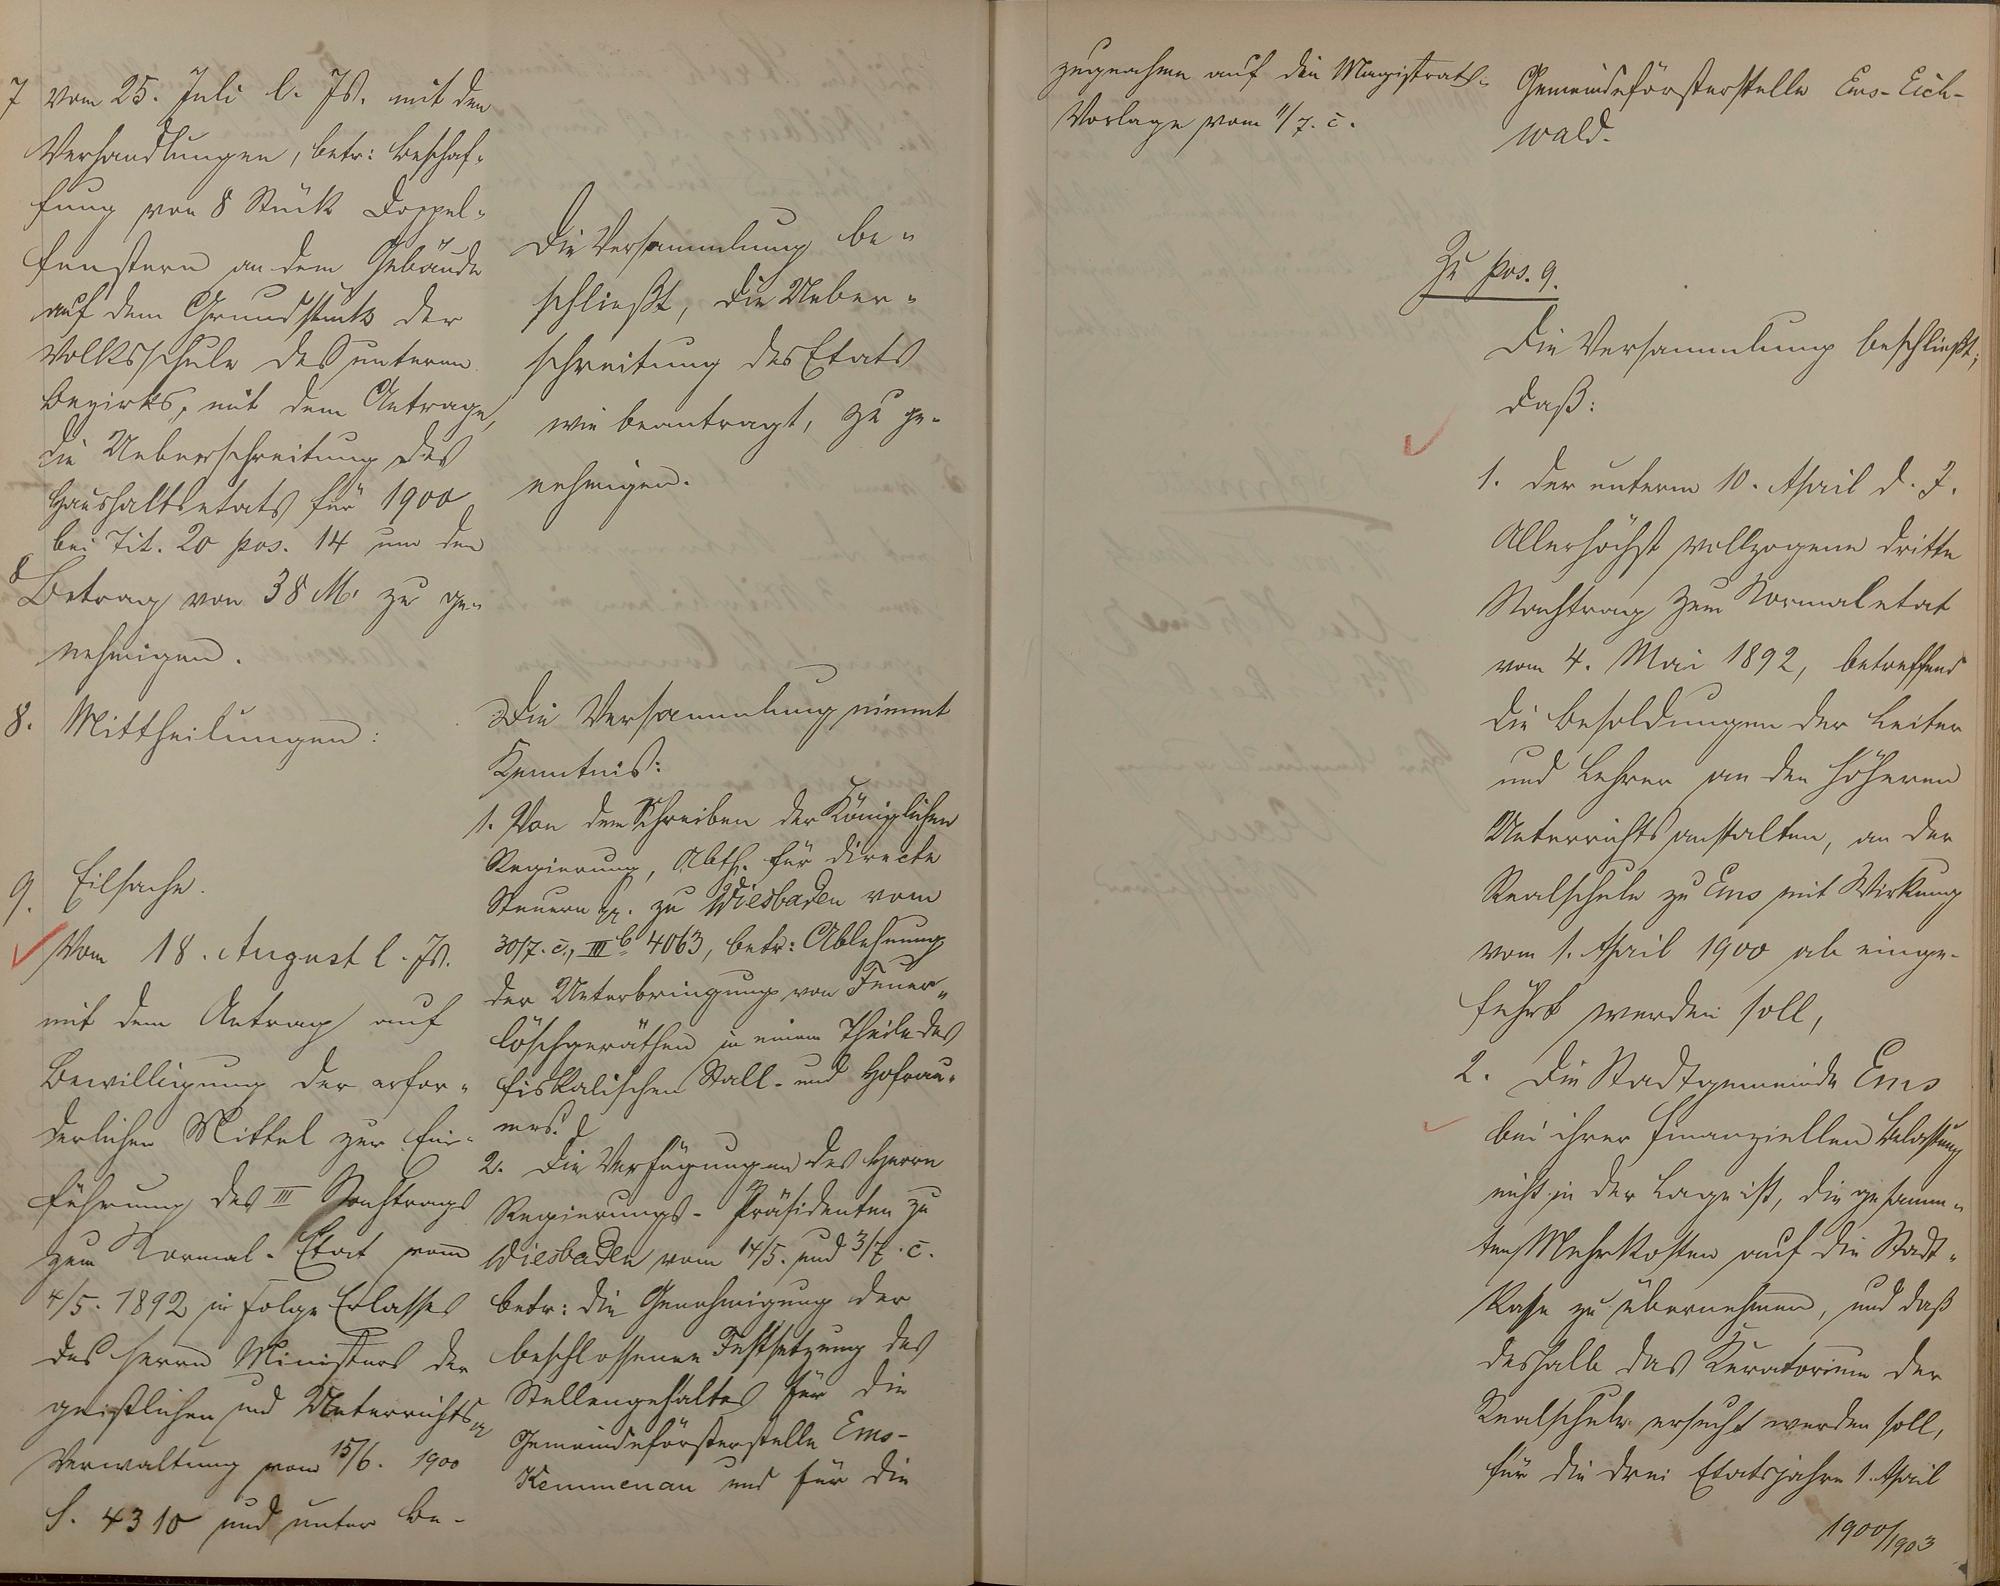 7 vom 25. Juli l. Js. mit den
Verhandlungen, betr: Beschaf-
fung von 8 Stück Doppel-
fenstern an dem Gebäude
auf dem Grundstück der
Volksschule des unteren
Bezirks, mit dem Antrage,
die Ueberschreitung des
Haushaltsetats für 1900
bei Tit. 20 pos. 14 um den
Betrag von 38 M. zu ge-
nehmigen.
Die Versammlung be-
schließt, die Ueber-
schreitung des Etats
wie beantragt, zu ge-
nehmigen.
8. Mittheilungen:
Die Versammlung nimmt
Kenntnis:
1. Von dem Schreiben der Königlichen
Regierung, Abth. für directe
Steuern pp. zu Wiesbaden vom
30/7. c., III b 4063, betr: Ablehnung
der Unterbringung von Feuer-
löschgeräthen in einem Theile des
fiskalischen Stall- und Hofrau-
mes.
2. Die Verfügungen des Herrn
Regierungs-Präsidenten zu
Wiesbaden vom 14/5. und 3/7. c.
betr: die Genehmigung der
beschlossenen Festsetzung des
Stellengehaltes für die
Gemeindeförsterstelle Ems-
Kemmenau und für die
9. Eilsache.
Vom 18. August l. Js.
mit dem Antrag auf
Bewilligung der erfor-
derlichen Mittel zur Ein-
führung des III Nachtrags
zum Normal-Etat vom
4/5. 1892 in Folge Erlasses
des Herrn Ministers der
geistlichen und Unterrichts
Verwaltung vom 15/6. 1900
S. 4310 und unter Be-
zugnahme auf die Magistrats-
Vorlage vom 11/7. c.
Gemeindeförsterstelle Ems-Eich-
wald.
Zu pos. 9.
Die Versammlung beschließt,
daß:
1. der unterm 10. April d. J.
Allerhöchst vollzogene dritte
Nachtrag zum Normaletat
vom 4. Mai 1892, betreffend
die Besoldungen der Leiter
und Lehrer an den höheren
Unterrichtsanstalten, an der
Realschule zu Ems mit Wirkung
vom 1. April 1900 ab einge-
führt werden soll,
2. Die Stadtgemeinde Ems
bei ihrer finanziellen Belastung
nicht in der Lage ist, die gesamm-
ten Mehrkosten auf die Stadt-
kasse zu übernehmen, und daß
deshalb das Kuratorium der
Realschule ersucht werden soll,
für die drei Etatsjahre 1. April
1900/1903